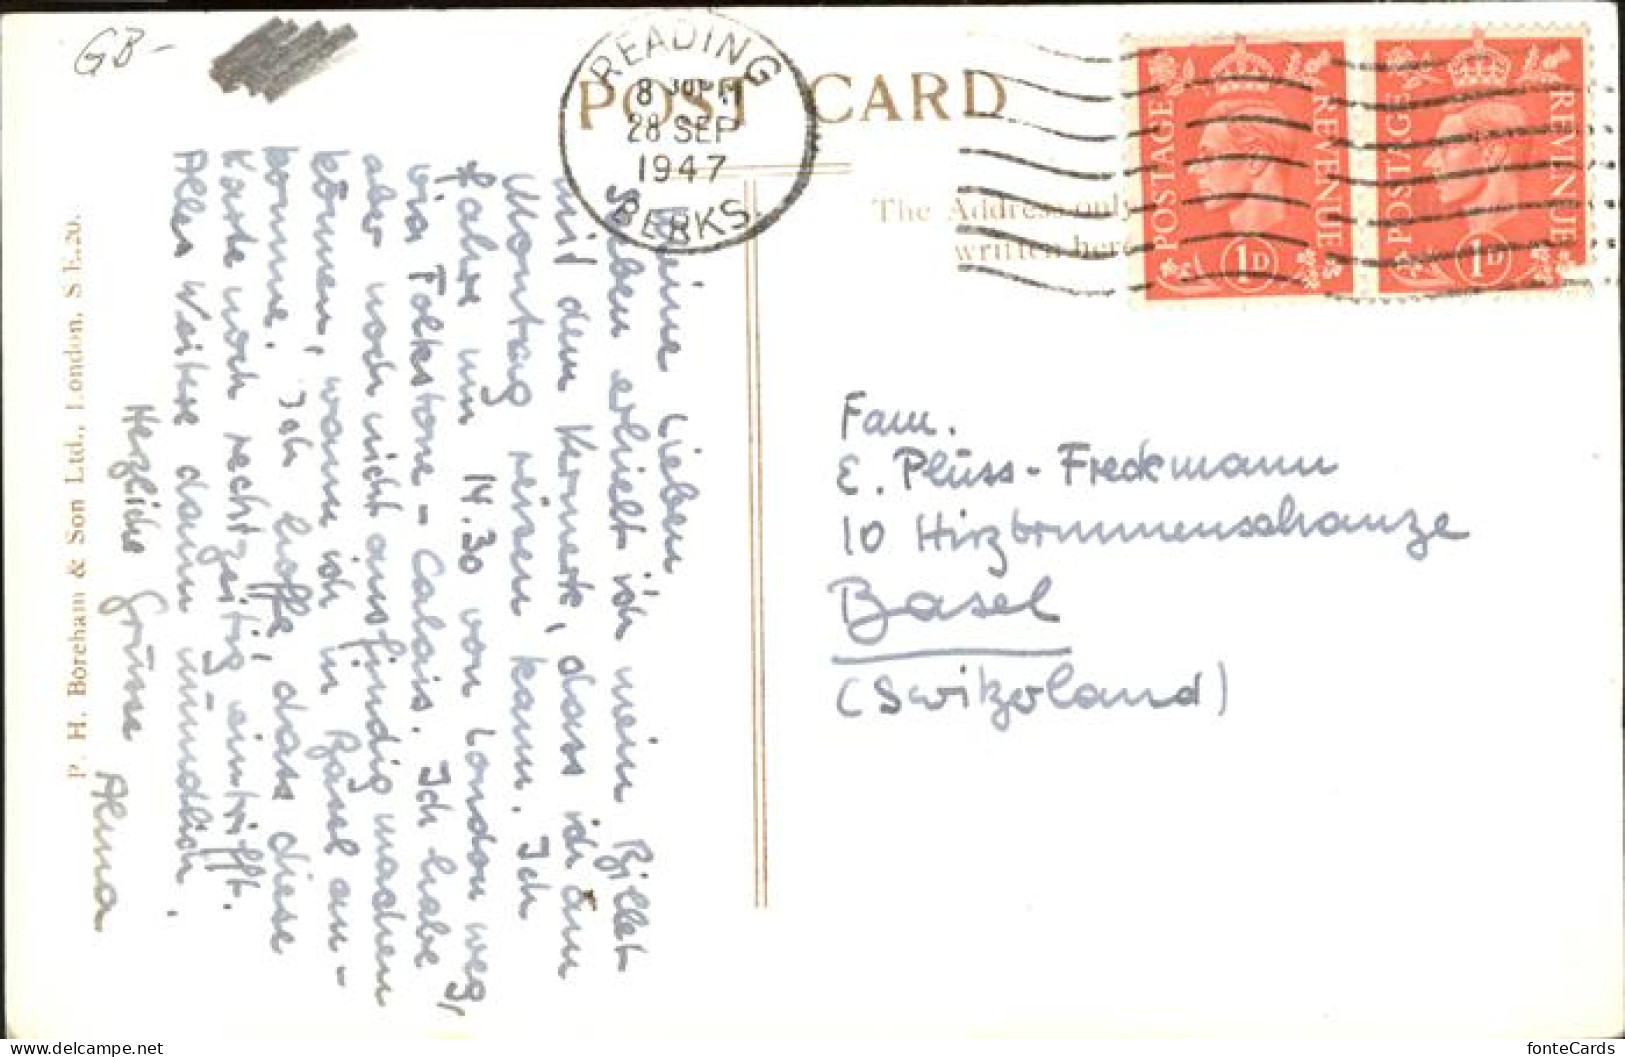 GB-
READING
8 PM
28 SEP
1947
BERKS.
POST CARD
The Address only
written here
POSTAGE REVENUE
1D
POSTAGE REVENUE
1D
Meine Lieben
Soeben erhielt ich mein Billet
mit dem Vermerk, dass ich am
Montag reisen kann. Ich
fahre um 14.30 von London weg,
via Folkstone - Calais. Ich habe
aber noch nicht ausfindig machen
können, wann ich in Basel an-
komme. Ich hoffe, dass diese
Karte noch rechtzeitig eintrifft.
Alles Weitere dann mündlich.
Herzliche Grüsse Alma
P. H. Boreham & Son Ltd., London, S.E.20.
Fam.
E. Plüss-Freckmann
10 Hirzbrunnenschanze
Basel
(Switzerland)
fonteCards